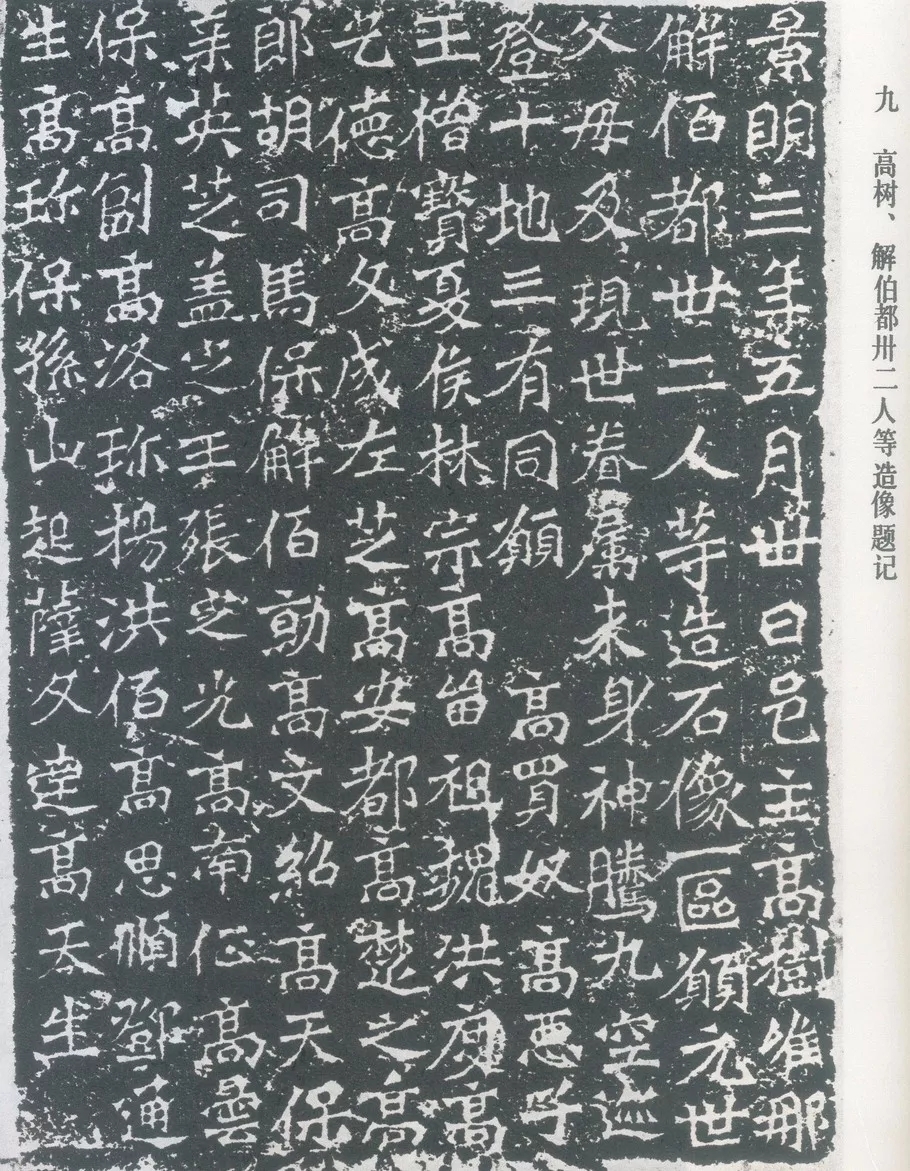 九 高树、解伯都卅二人等造像题记
景明三年五月卅日邑主高樹唯那
解佰都卅二人等造石像一區願元世
父母及現世眷属来身神騰九空迹
登十地三有同願 高買奴 高悪子
王僧寶夏侯林宗高留祖魏洪度高
乞德高文成左芝高安都高楚之高
郎胡司馬保解佰勍高文紹高天保
英芝盖之王張之光高南征高曇
保高副高洛珎楊洪佰高思順鄧通
生高珎保孫山起薩文達高天生